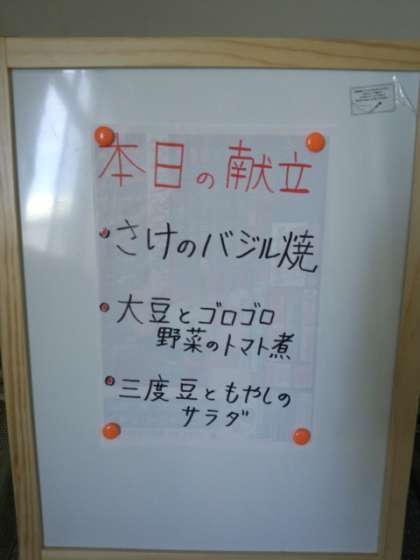 本日の献立
• さけのバジル焼
• 大豆とゴロゴロ
野菜のトマト煮
• 三度豆ともやしの
サラダ